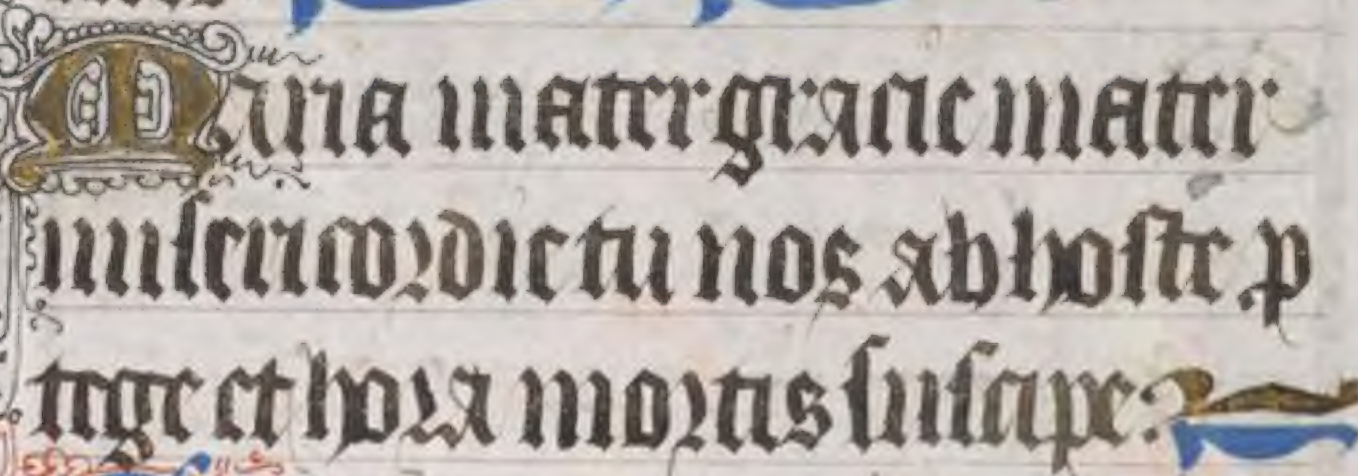 Maria mater gratie mater
misericordie tu nos ab hoste p
tege et hora mortis suscipe